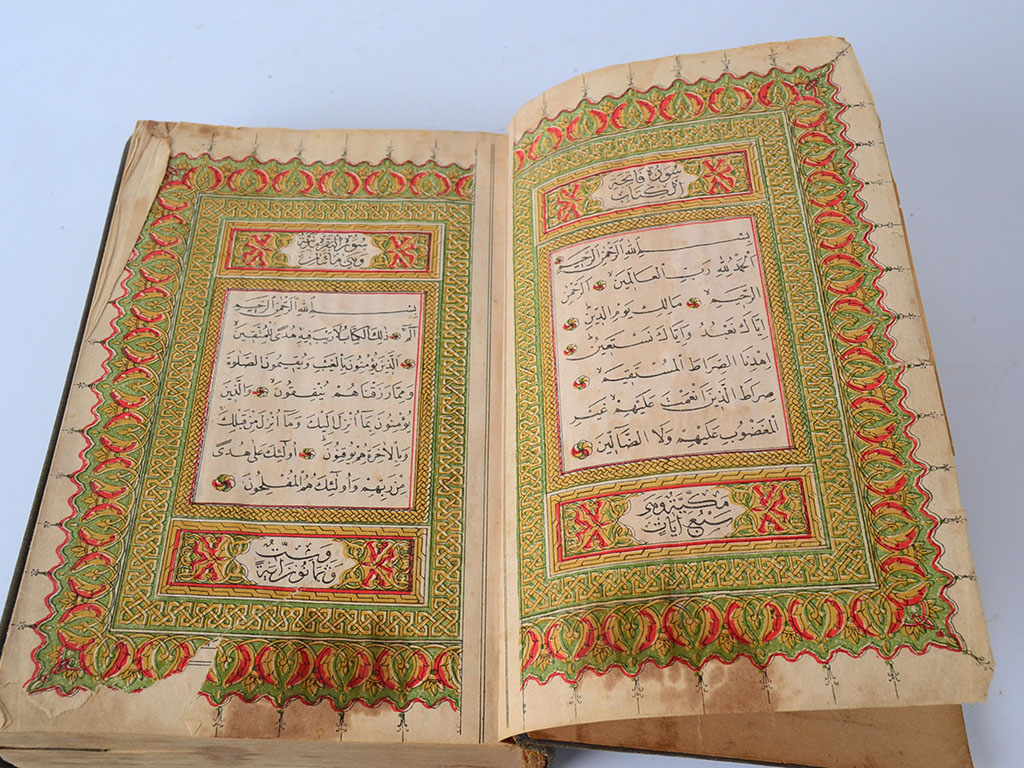 سورة فاتحة
الكتاب
بسم الله الرحمن الرحيم
الحمد لله رب العالمين الرحمن
الرحيم مالك يوم الدين
اياك نعبد واياك نستعين
اهدنا الصراط المستقيم
صراط الذين انعمت عليهم غير
المغضوب عليهم ولا الضالين
مكية وهي
سبع آيات
سورة البقرة
وهي مائتان
بسم الله الرحمن الرحيم
الم ذلك الكتاب لا ريب فيه هدى للمتقين
الذين يؤمنون بالغيب ويقيمون الصلوة
ومما رزقناهم ينفقون والذين
يؤمنون بما انزل اليك وما انزل من قبلك
وبالآخرة هم يوقنون اولئك على هدى
من ربهم واولئك هم المفلحون
وست
وثمانون آية